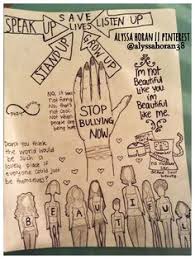 SPEAK UP
SAVE
LIVES
LISTEN UP
STAND UP
GROW UP
ALYSSA HORAN // PINTEREST
@alyssahoran38
I'm not
Beautiful
like you
I'm
Beautiful
like me
No, it is
not funny
No, that's
not cool.
STOP
BULLYING
NOW
Don't you think
the world would
be such a
lovely place if
everyone could just
be themselves?
B E A T I L